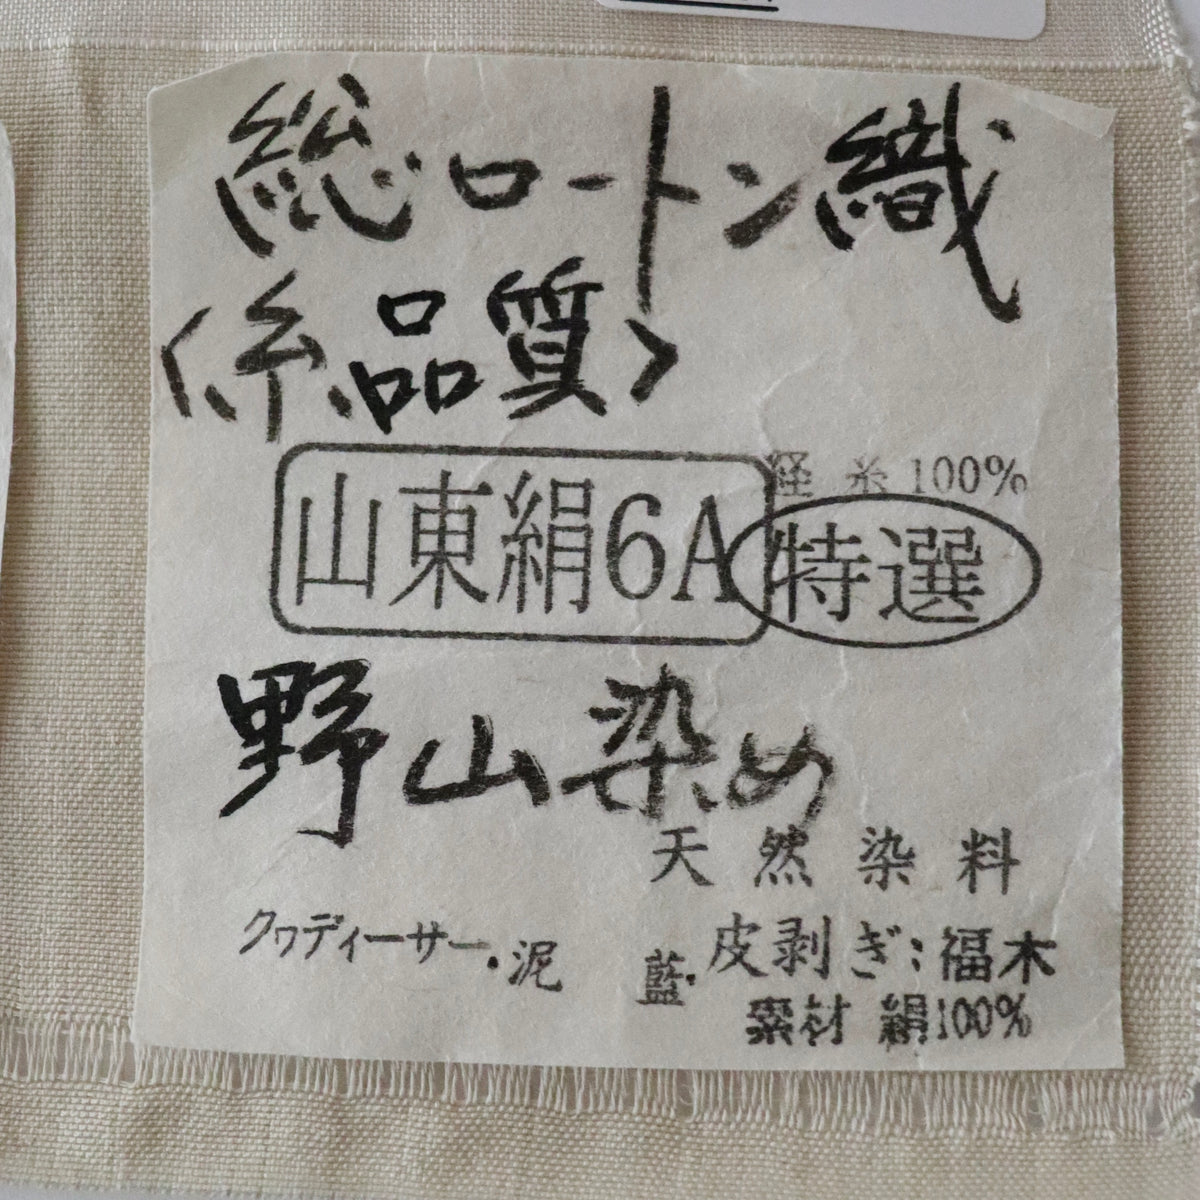 総ロートン織
〈糸品質〉
経糸100%
山東絹6A 特選
野山染め
天然染料
クワディーサー・泥 藍・皮剥ぎ:福木
素材 絹100%